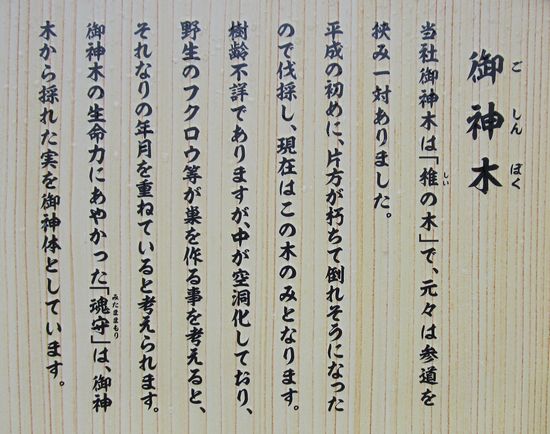 御神木
ごしんぼく
当社御神木は「椎の木」で、元々は参道を
しい
挟み一対ありました。
平成の初めに、片方が朽ちて倒れそうになった
ので伐採し、現在はこの木のみとなります。
樹齢不詳でありますが、中が空洞化しており、
野生のフクロウ等が巣を作る事を考えると、
それなりの年月を重ねていると考えられます。
御神木の生命力にあやかった「魂守」は、御神
みたままもり
木から採れた実を御神体としています。